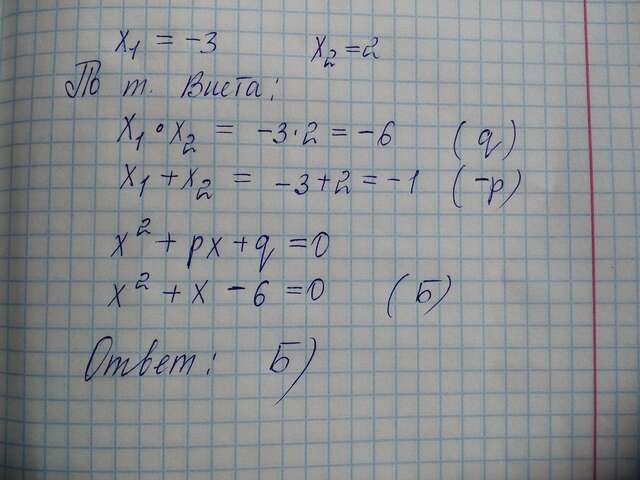 x₁ = -3 x₂ = 2
По т. Виета:
x₁ • x₂ = -3·2 = -6 (q)
x₁ + x₂ = -3+2 = -1 (-p)
x² + px + q = 0
x² + x - 6 = 0 (Б)
Ответ: Б)